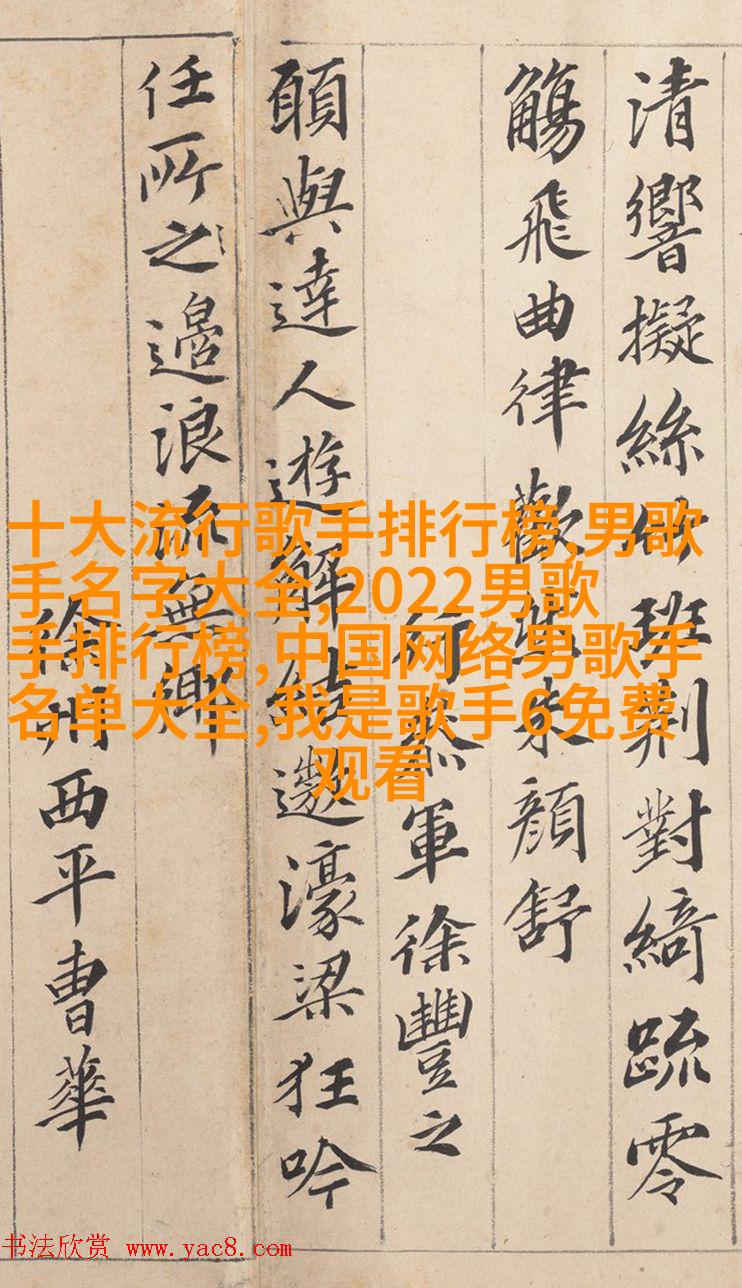 清響擬絲竹班荆對綺疏零
觴飛曲律歡然朱顏舒
行叅軍徐豐之
願與達人遊解結遨濠梁狂吟
任所之邉浪流無鄉
徐州西平曹華
十大流行歌手排行榜,男歌
手名字大全,2022男歌
手排行榜,中国网络男歌手
名单大全,我是歌手6免费
观看
书法欣赏 www.yac8.com